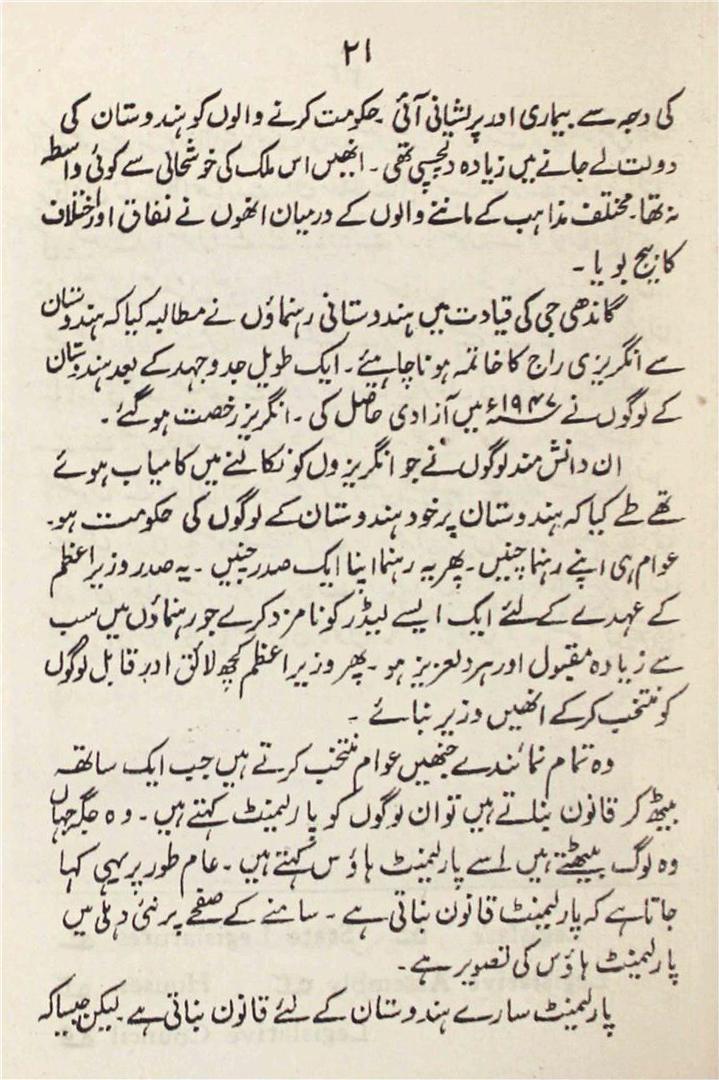 ۲۱
کی وجہ سے بیماری اور پریشانی آئی ۔ حکومت کرنے والوں کو ہندوستان کی
دولت لے جانے میں زیادہ دلچسپی تھی ۔ انھیں اس ملک کی خوشحالی سے کوئی واسطہ
نہ تھا۔ مختلف مذاہب کے ماننے والوں کے درمیان انھوں نے نفاق اور اختلاف
کا بیج بویا ۔
گاندھی جی کی قیادت میں ہندوستانی رہنماؤں نے مطالبہ کیا کہ ہندوستان
سے انگریزی راج کا خاتمہ ہونا چاہیئے ۔ ایک طویل جدوجہد کے بعد ہندوستان
کے لوگوں نے ۱۹۴۷ء میں آزادی حاصل کی ۔ انگریز رخصت ہو گئے ۔
ان دانش مند لوگوں نے جو انگریزوں کو نکالنے میں کامیاب ہوئے
تھے طے کیا کہ ہندوستان پر خود ہندوستان کے لوگوں کی حکومت ہو۔
عوام ہی اپنے رہنما چنیں ۔ پھر یہ رہنما اپنا ایک صدر چنیں ۔ یہ صدر وزیر اعظم
کے عہدے کے لئے ایک ایسے لیڈر کو نامزد کرے جو رہنماؤں میں سب
سے زیادہ مقبول اور ہردلعزیز ہو ۔ پھر وزیر اعظم کچھ لائق اور قابل لوگوں
کو منتخب کر کے انھیں وزیر بنائے ۔
وہ تمام نمائندے جنھیں عوام منتخب کرتے ہیں جب ایک ساتھ
بیٹھ کر قانون بناتے ہیں تو ان لوگوں کو پارلیمنٹ کہتے ہیں ۔ وہ جگہ جہاں
وہ لوگ بیٹھتے ہیں اسے پارلیمنٹ ہاؤس کہتے ہیں ۔ عام طور پر یہی کہا
جاتا ہے کہ پارلیمنٹ قانون بناتی ہے ۔ سامنے کے صفحے پر نئی دہلی میں
پارلیمنٹ ہاؤس کی تصویر ہے ۔
پارلیمنٹ سارے ہندوستان کے لئے قانون بناتی ہے لیکن جیسا کہ